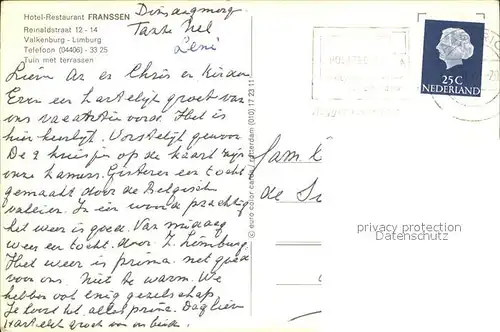 Hotel-Restaurant FRANSSEN
Reinaldstraat 12 - 14
Valkenburg - Limburg
Telefoon (04406) - 33 25
Tuin met terrassen
Dinsdagmorg.
Tante Nel
Leni
25 C
NEDERLAND
en Chris en Kinderen
Even een hartelijk groet van
ons vacantie oord. Het is
hier heerlijk. Vorstelijk
De 2 huisjes op de kaart zijn
onze kamers. Gisteren een tocht
gemaakt door de Belgisch
In één woord prachtig
het weer is goed. Van middag
weer een tocht door Z. Limburg
Het weer is prima net goed
voor ons. Niet te warm. We
hebben ook enig gezelschap
alles prima. Dag lien
Hartelijk groet van ons beide.
© euro color cards / rotterdam (010) 17 23 11
Fam
de
privacy protection
Datenschutz